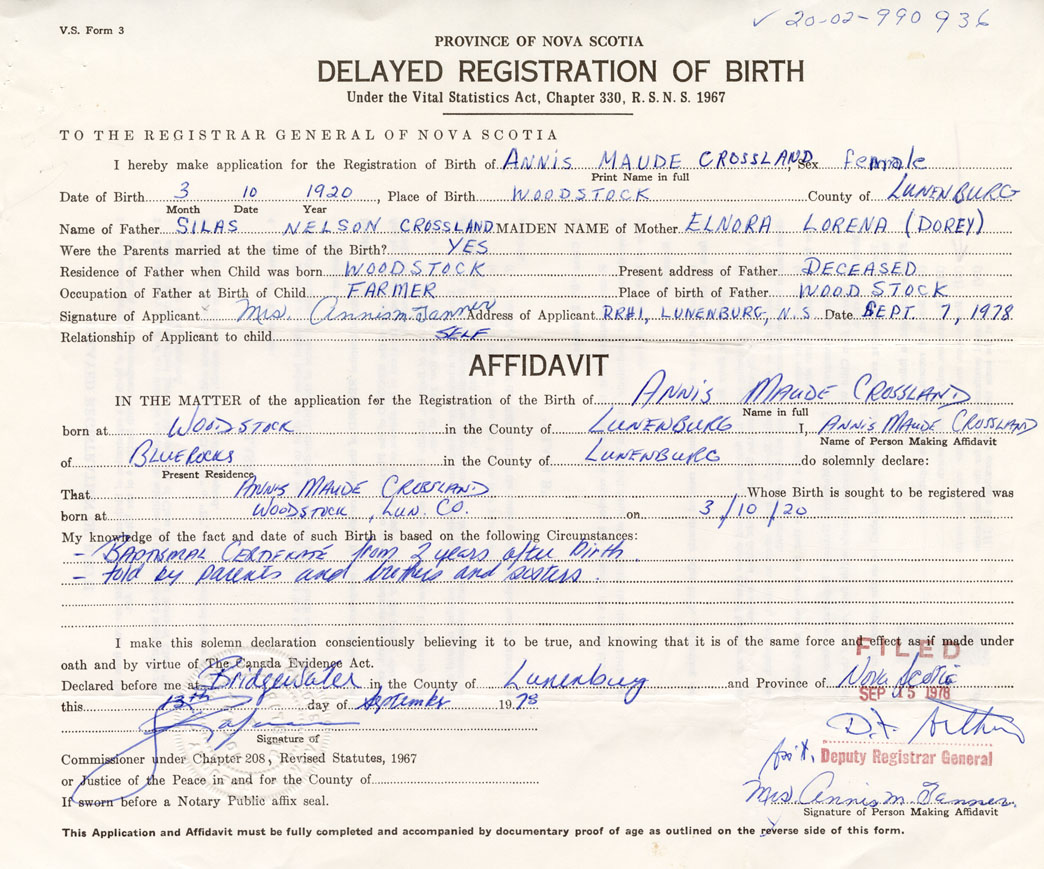 V.S. Form 3
✓ 20-02-990 936
PROVINCE OF NOVA SCOTIA
DELAYED REGISTRATION OF BIRTH
Under the Vital Statistics Act, Chapter 330, R.S.N.S. 1967
TO THE REGISTRAR GENERAL OF NOVA SCOTIA
I hereby make application for the Registration of Birth of ANNIS MAUDE CROSSLAND, Sex female
Print Name in full
Date of Birth 3 10 1920, Place of Birth WOODSTOCK County of LUNENBURG
Month Date Year
Name of Father SILAS NELSON CROSSLAND MAIDEN NAME of Mother ELNORA LORENA (DOREY)
Were the Parents married at the time of the Birth? YES
Residence of Father when Child was born WOODSTOCK Present address of Father DECEASED
Occupation of Father at Birth of Child FARMER Place of birth of Father WOODSTOCK
Signature of Applicant Mrs. Annis m. Tanner Address of Applicant RR#1, LUNENBURG, N.S. Date SEPT. 7, 1978
Relationship of Applicant to child SELF
AFFIDAVIT
IN THE MATTER of the application for the Registration of the Birth of ANNIS MAUDE CROSSLAND
Name in full
born at WOODSTOCK in the County of LUNENBURG I, ANNIS MAUDE CROSSLAND
Name of Person Making Affidavit
of BLUEROCKS in the County of LUNENBURG do solemnly declare:
Present Residence
That ANNIS MAUDE CROSSLAND Whose Birth is sought to be registered was
born at WOODSTOCK, LUN. CO. on 3/10/20
My knowledge of the fact and date of such Birth is based on the following Circumstances:
- BAPTISMAL CERTIFICATE from 2 years after birth
- told by parents and brothers and sisters.
I make this solemn declaration conscientiously believing it to be true, and knowing that it is of the same force and effect as if made under
oath and by virtue of The Canada Evidence Act.
FILED
Declared before me at Bridgewater in the County of Lunenburg and Province of Nova Scotia
SEP 15 1978
this 13th day of September 1978
Signature of
D.F. Arthur
Commissioner under Chapter 208, Revised Statutes, 1967
Ass't, Deputy Registrar General
or Justice of the Peace in and for the County of
If sworn before a Notary Public affix seal.
Mrs. Annis m. Tanner
Signature of Person Making Affidavit
This Application and Affidavit must be fully completed and accompanied by documentary proof of age as outlined on the reverse side of this form.